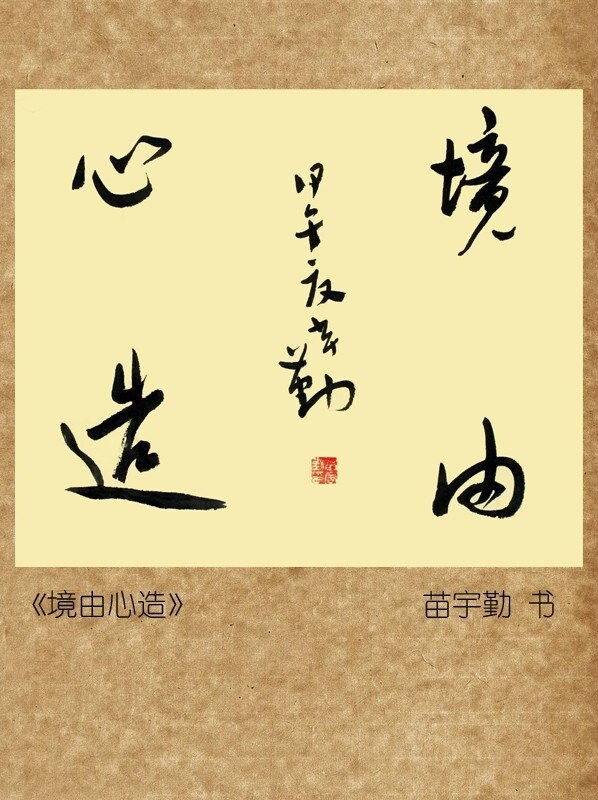 境由
心造
甲午夏宇勤
《境由心造》
苗宇勤 书